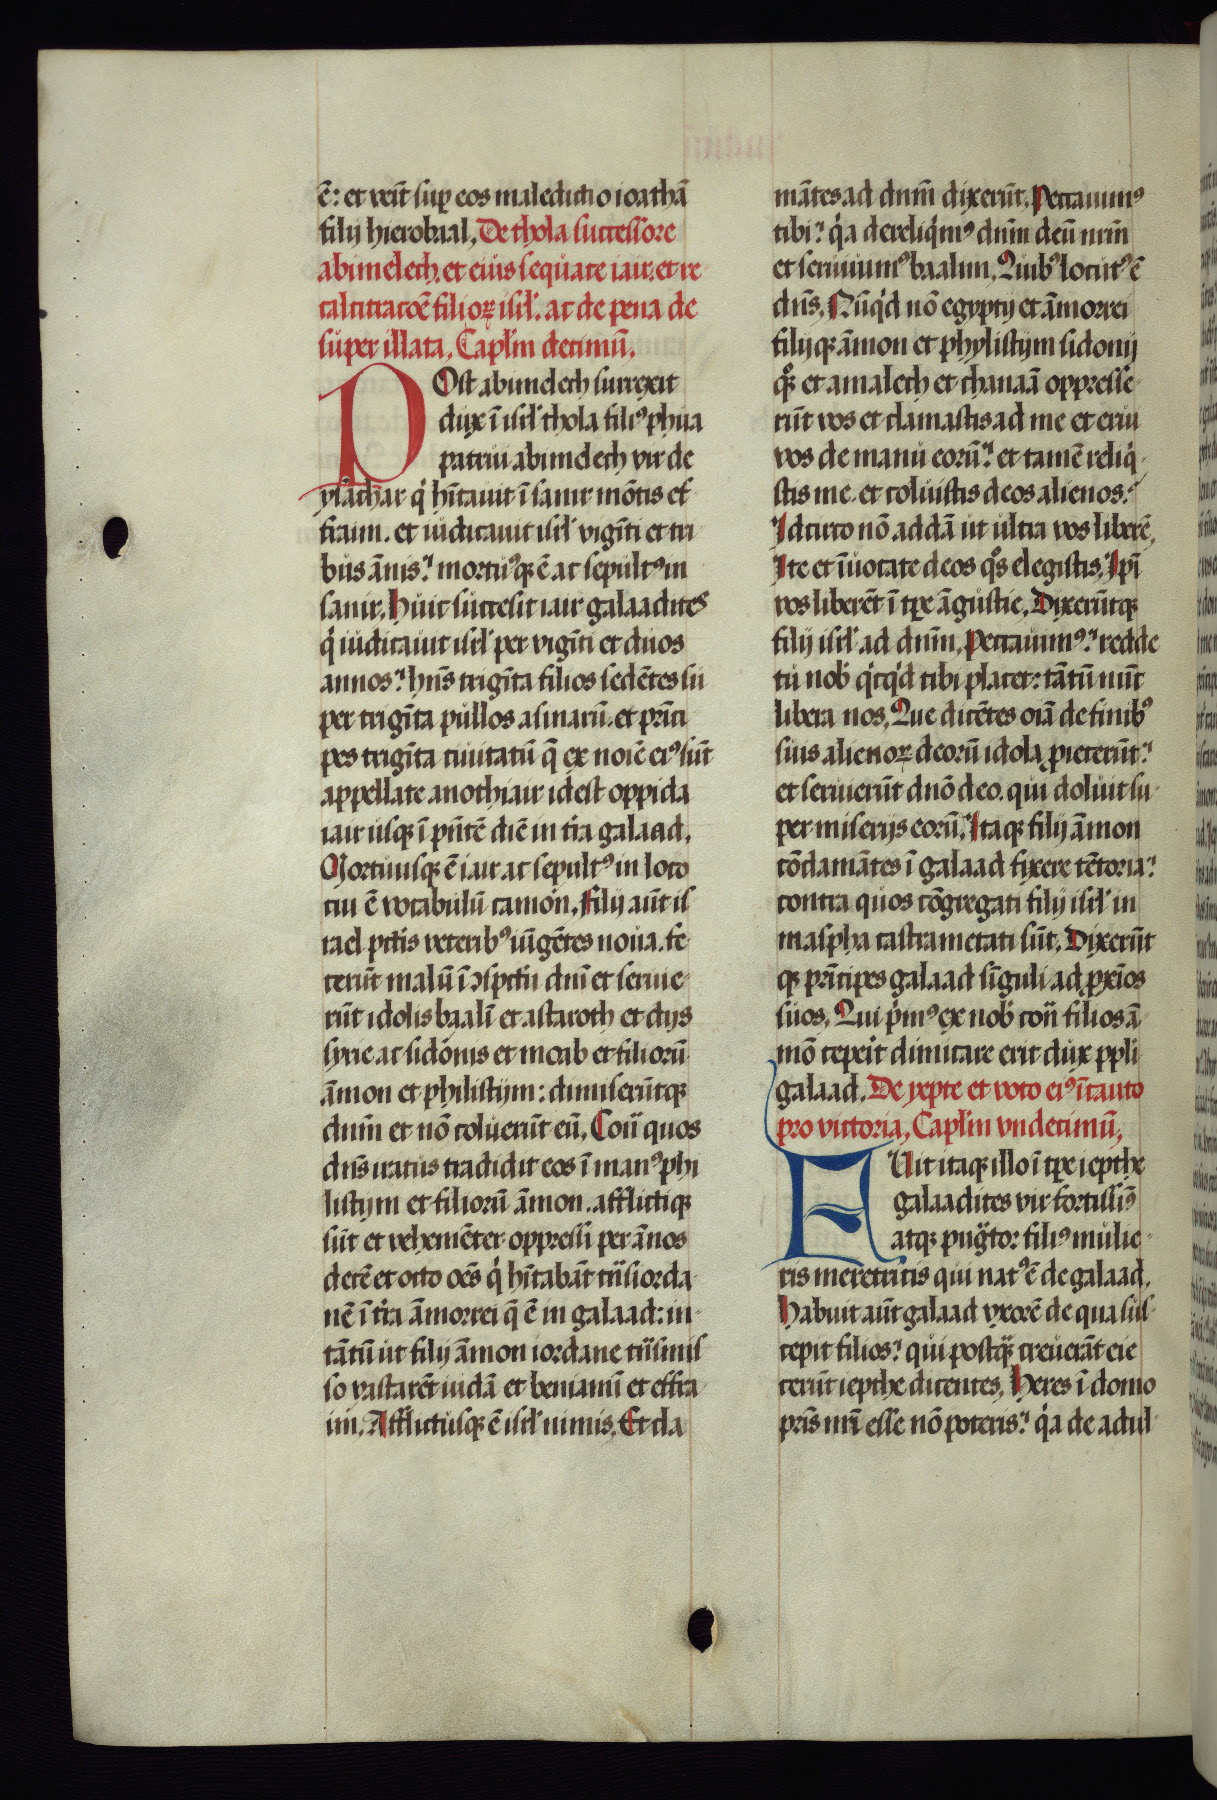 ē: et veīt sup̲ eos maledictio ioathā
filij hierobaal, De thola successore
abimelech. et eius sequace iair. et re
calcitracōe filioꝝ isrl̓. ac de pena de
super illata, Capl̓m decimū,
POst abimelech surrexit
dux ī isrl̓ thola filiꝰ phua
patrui abimelech vir de
ysachar q̇ hītauit ī sanir mōtis ef
fraim. et iudicauit isrl̓ vigīti et tri
bus ānis: mortuꝰqꝫ ē ac sepultꝰ in
sanir. Huic successit iair galaadites
q̇ iudicauit isrl̓ per vigīti et duos
annos: hn̄s trigīta filios sedētes su
per trigīta pullos asinarū. et prīci
pes trigīta ciuitatū q̄ ex noīe eiꝰ sūt
appellate anothiair idest oppida
iair usqꝫ ī pn̄tē diē in tr̄a galaad,
Mortuusqꝫ ē iair ac sepultꝰ in loco
cui ē vocabulū camón, Filij aūt is
rael pctīs veteribꝰ uīgētes noua. fe
cerūt malū ī ꝯspctū dnī et seruie
rūt idolis baalī et astaroth et dijs
syrie ac sidónis et moab et filiorū
āmon et philistijm: dimiserūtqꝫ
dnm̄ et nō coluerūt eū, Coñ quos
dn̄s iratus tradidit eos ī manꝰ phi
listijm et filiorū āmon. afflictiqꝫ
sūt et vehemēter oppressi per ānos
decē et octo oēs q̇ hītabāt trās iorda
nē ī tr̄a āmorrei q̄ ē in galaad: in
tātū ut filij āmon iordane trāsmis
so vastarēt iudā et beniamī et effra
im, Afflictusqꝫ ē isrl̓ nimis. Et cla
mātes ad dnm̄ dixerūt, Peccauimꝰ
tibi: q̇a dereliq̇mꝰ dnm̄ deū nrm̄
et seruiuimꝰ baalim, Quibꝰ locutꝰ ē
dn̄s, Nūq̇d nō egyptij et āmorrei
filijqꝫ āmon et phylistijm sidonij
qꝫ et amalech et chanaā oppresse
rūt vos et clamastis ad me et erui
vos de manu eorū: et tamē reliq̇
stis me. et coluistis deos alienos:
Idcirco nō addā ut ultra vos liberē,
Ite et īuocate deos q̊s elegistis, Ipī
vos liberēt ī tpe āgustie, Dixerūtqꝫ
filij isrl̓ ad dnm̄, Peccauimꝰ: redde
tu nob̓ q̇cq̇d tibi placet: tātū nūc
libera nos, Que dicētes oīa de finibꝰ
suis alienoꝝ deorū idola ꝓiecerūt:
et seruierūt dnō deo. qui doluit su
per miserijs eorū, Itaqꝫ filij āmon
cōclamātes ī galaad fixere tētoria:
contra quos cōgregati filij isrl̓ in
maspha castrametati sūt, Dixerūt
qꝫ prīcipes galaad sīguli ad ꝓxīos
suos, Qui p̓mꝰ ex nob̓ coñ filios ā
mō ceperit dimicare erit dux ppl̓i
galaad, De yepte et voto eiꝰ īcauto
pro victoria, Capl̓m vndecimū,
FUit itaqꝫ illo ī tpe iepthe
galaadites vir fortissīꝰ
atqꝫ pug̅tor filiꝰ mulie
ris meretricis qui natꝰ ē de galaad,
Habuit aūt galaad vxorē de qua sus
cepit filios: qui postq̄ creuerāt eie
cerūt iepthe dicentes, Heres ī domo
prīs nrī esse nō poteris: q̇a de adul